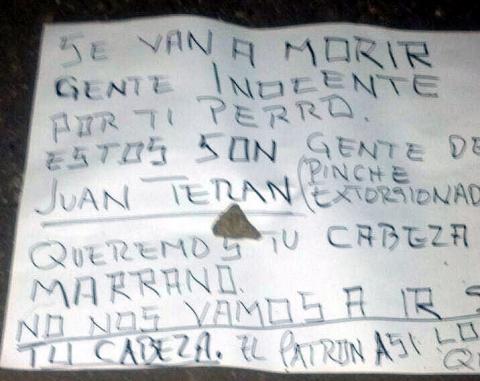 SE VAN A MORIR
GENTE INOCENTE
POR TI PERRO.
ESTOS SON GENTE DE
JUAN TERAN (PINCHE
EXTORSIONAD
QUEREMOS TU CABEZA
MARRANO.
NO NOS VAMOS A IR S
TU CABEZA. EL PATRON ASI LO
QU